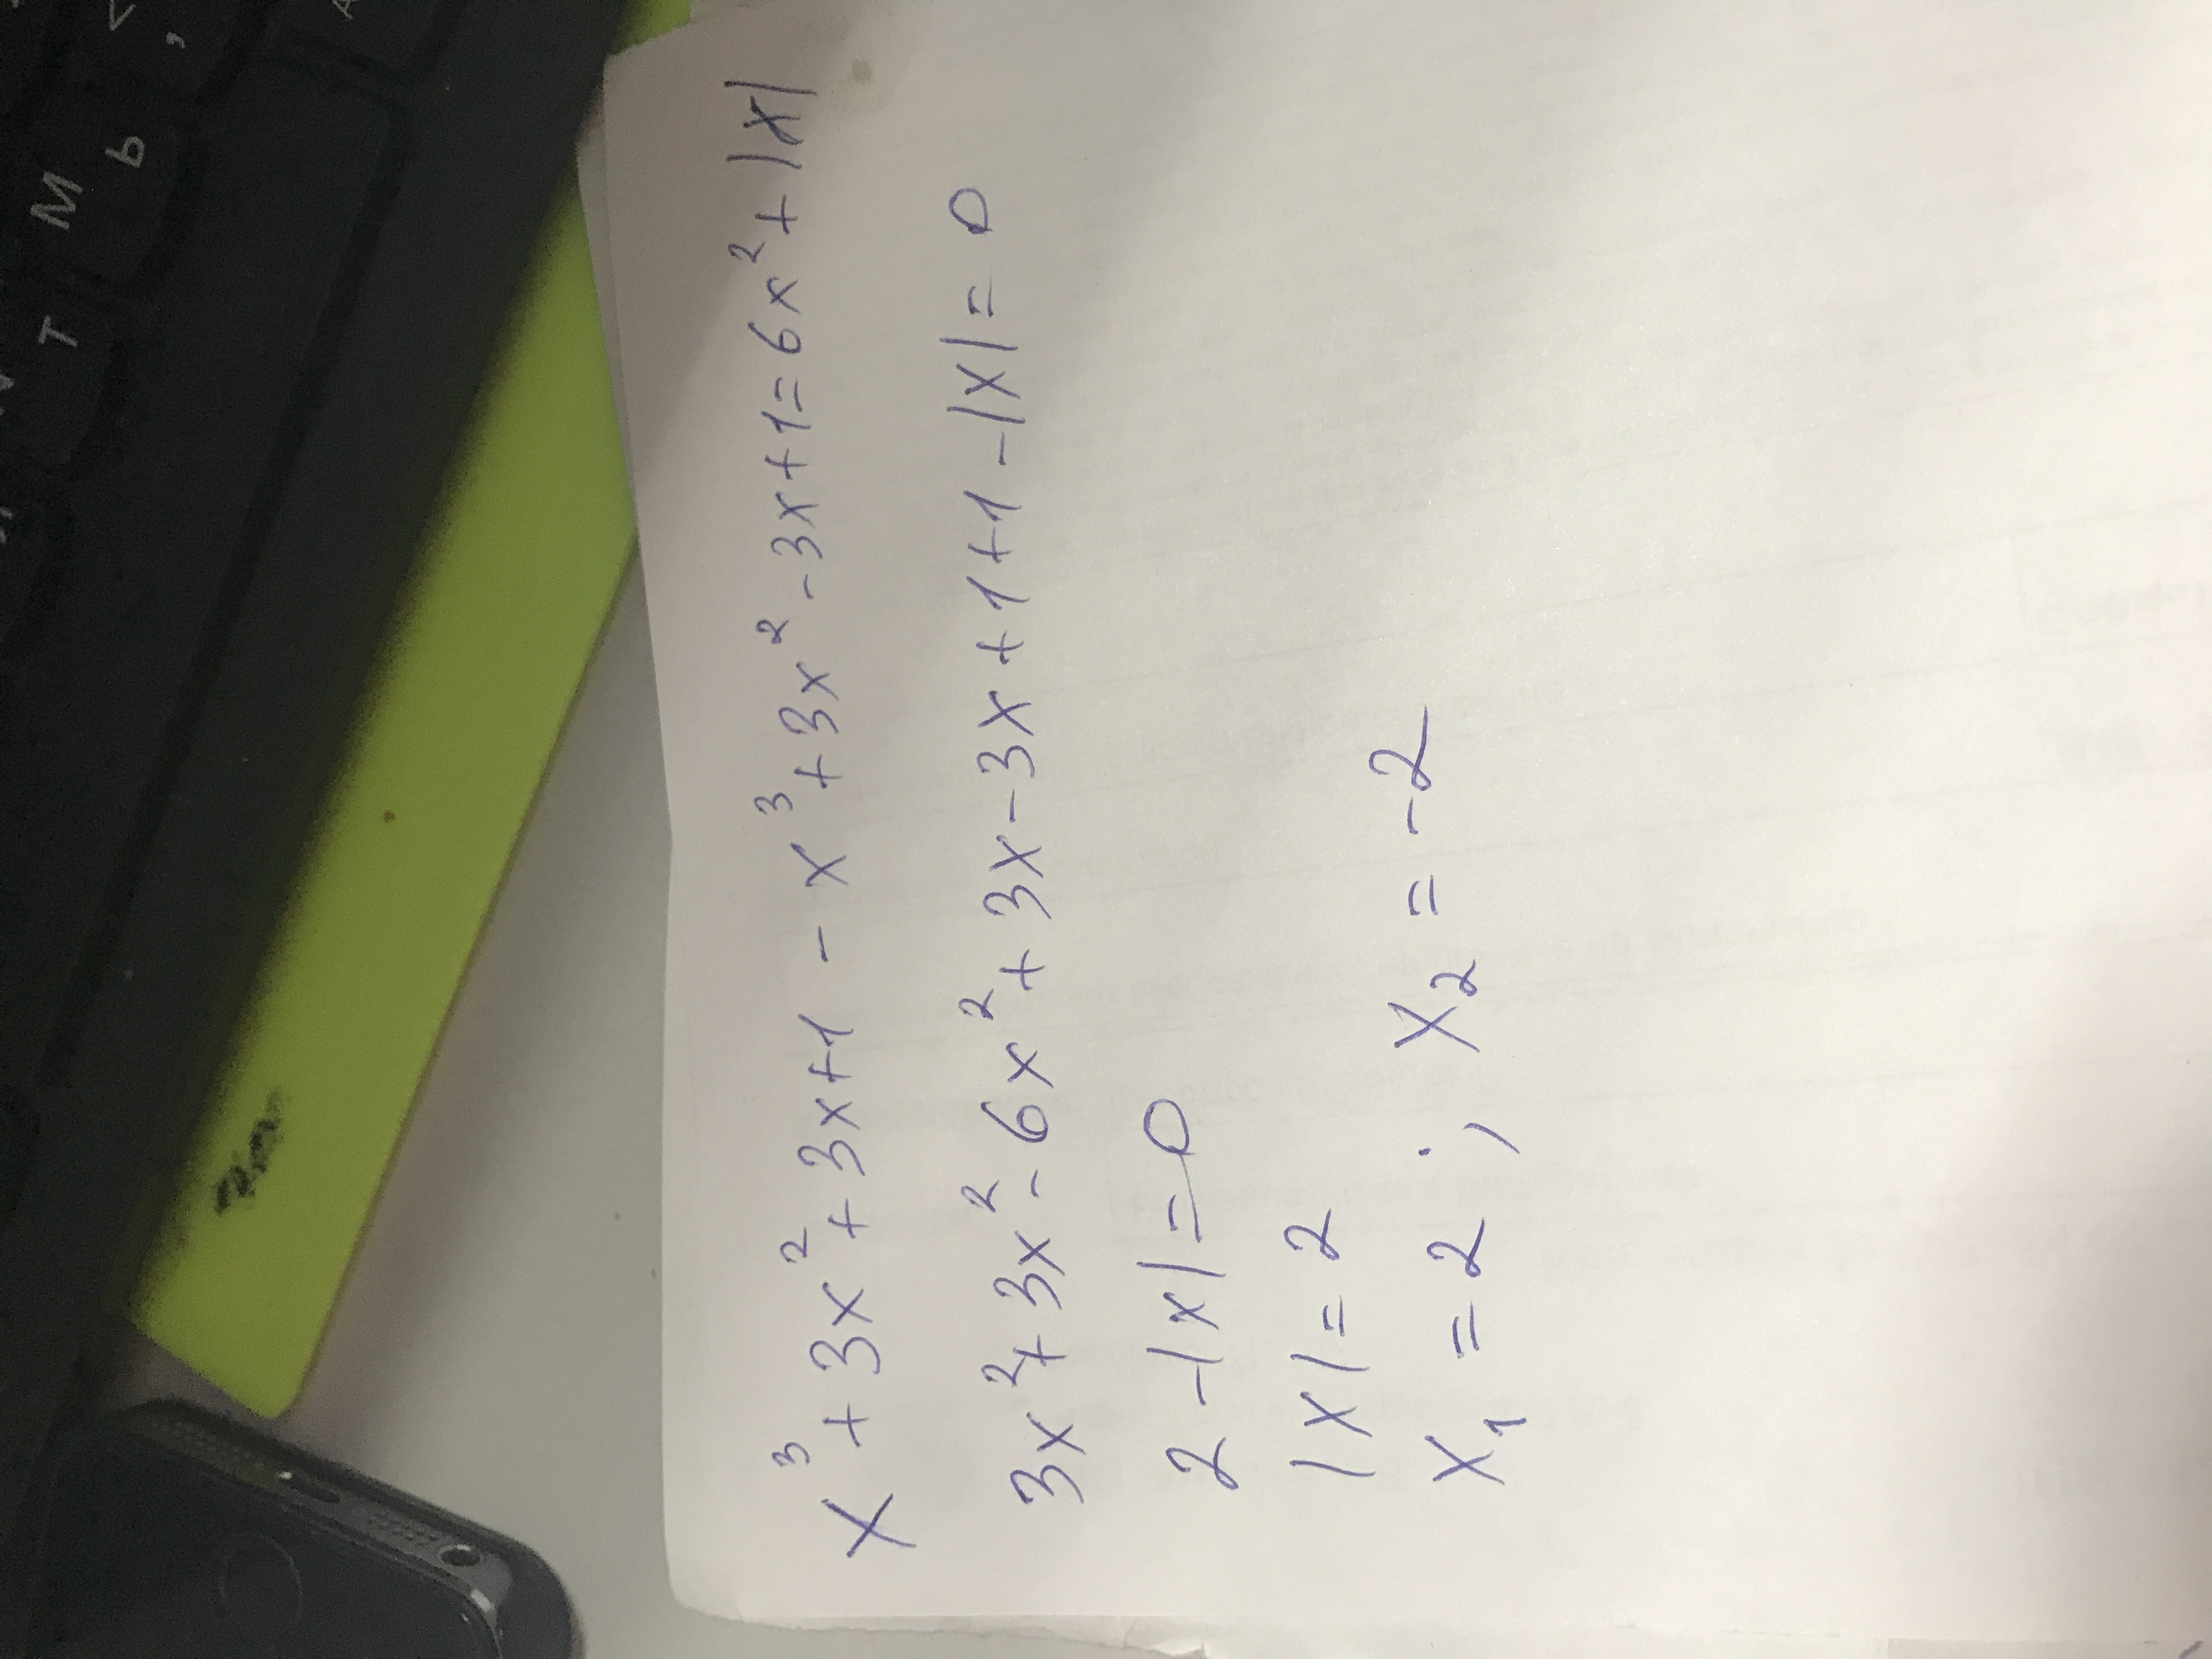 x³+3x²+3x+1-x³+3x²-3x+1=6x²+|x|
3x²+3x²-6x²+3x-3x+1+1-|x|=0
2-|x|=0
|x|=2
x₁=2; x₂=-2
Т М
Ь